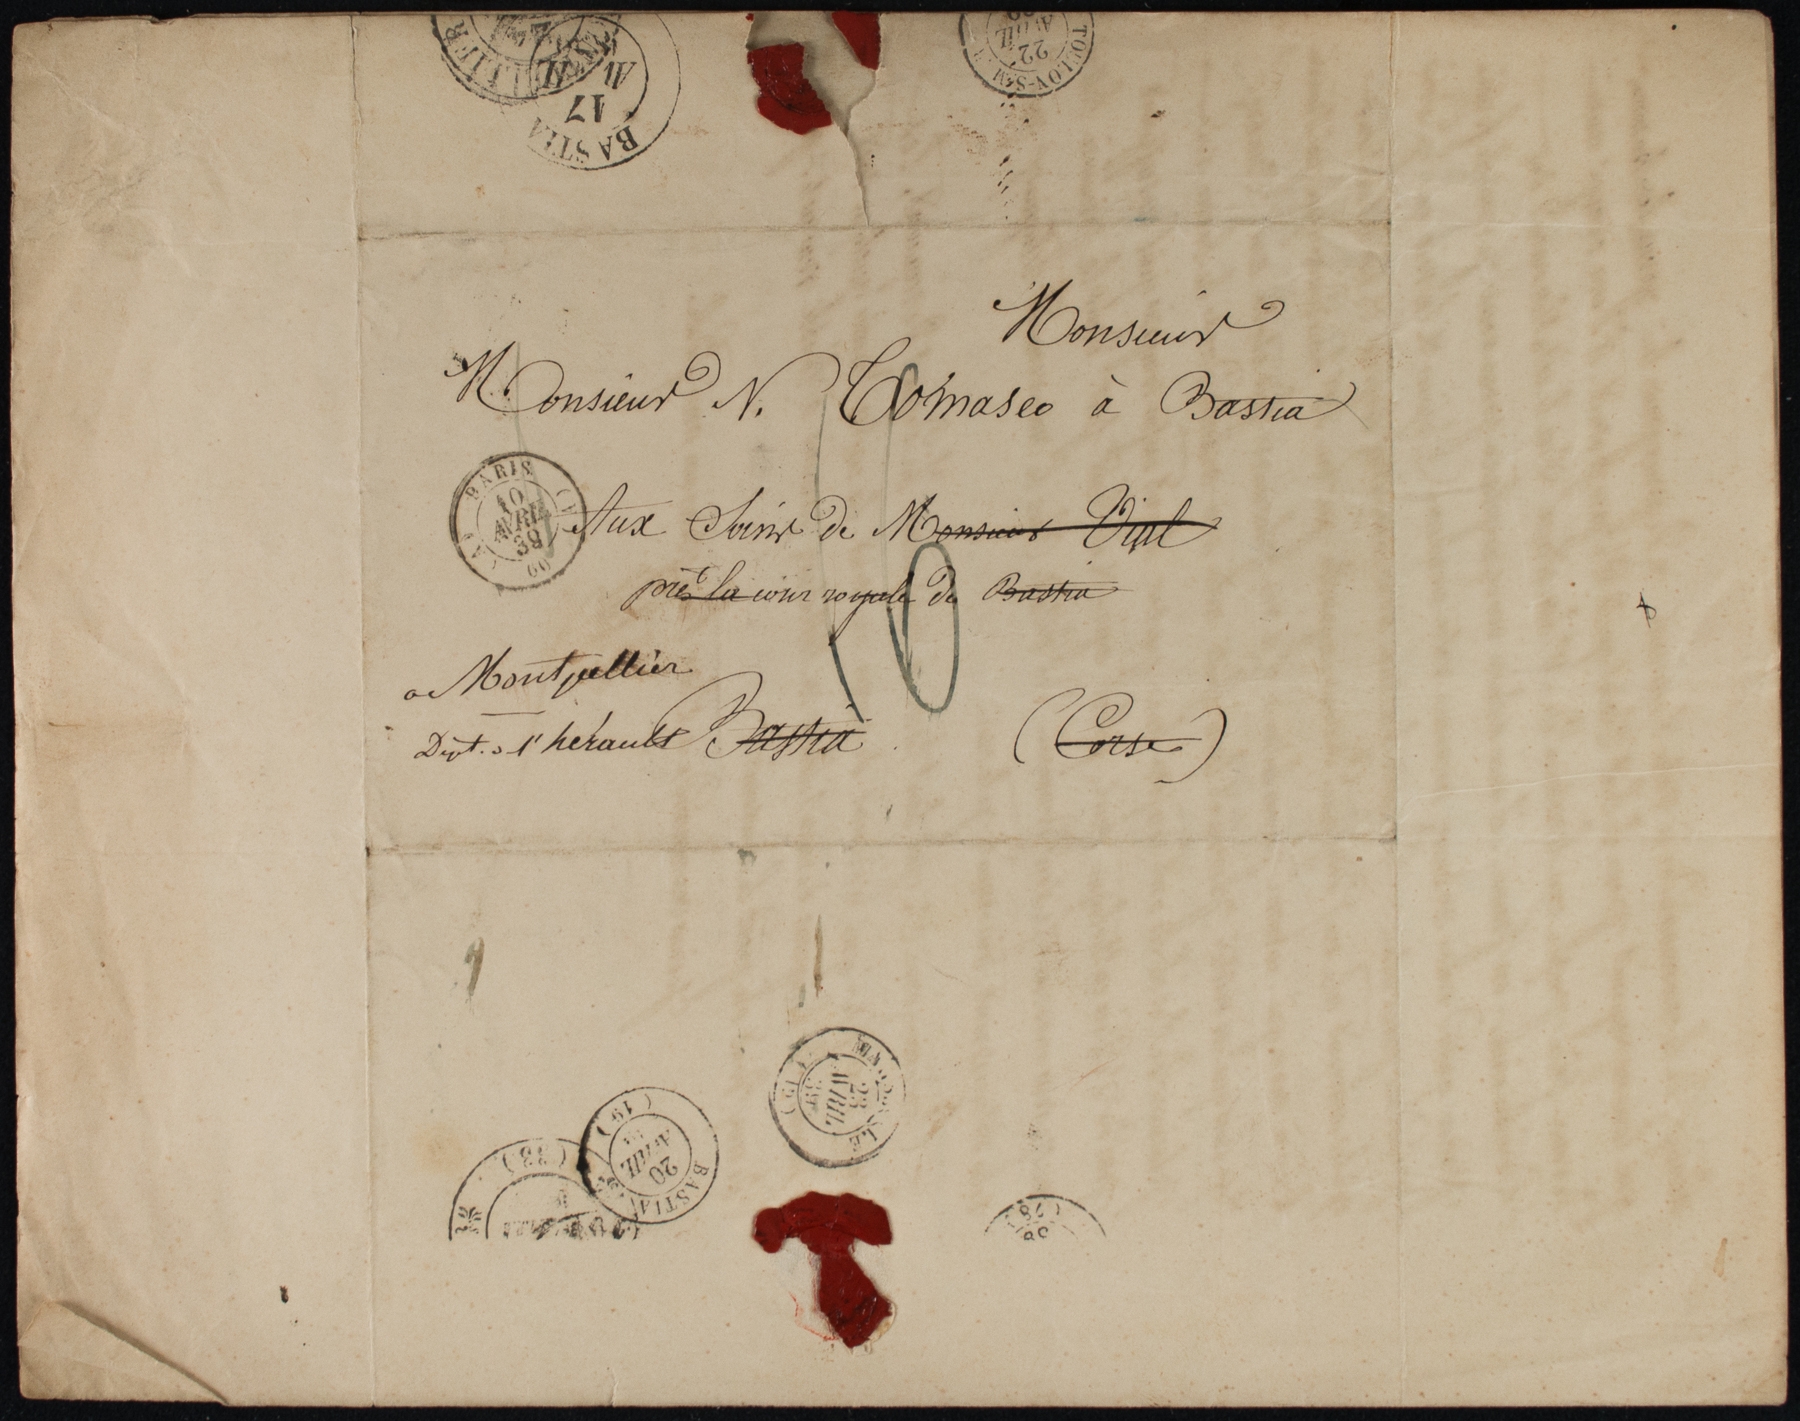 BASTIA
17
AV
TOULON-S-MER
22
AVRIL
Monsieur
Monsieur N. Tomaseo à Bastia
PARIS
10
AVRIL
39
60
Aux Soins de Monsieur Vial
près la cour royale de Bastia
a Montpellier
Dept. de l'hérault Bastia (Corse)
MARSEILLE
23
AVRIL
39
(12)
(19)
BASTIA
20
AVRIL
(33)
(78)